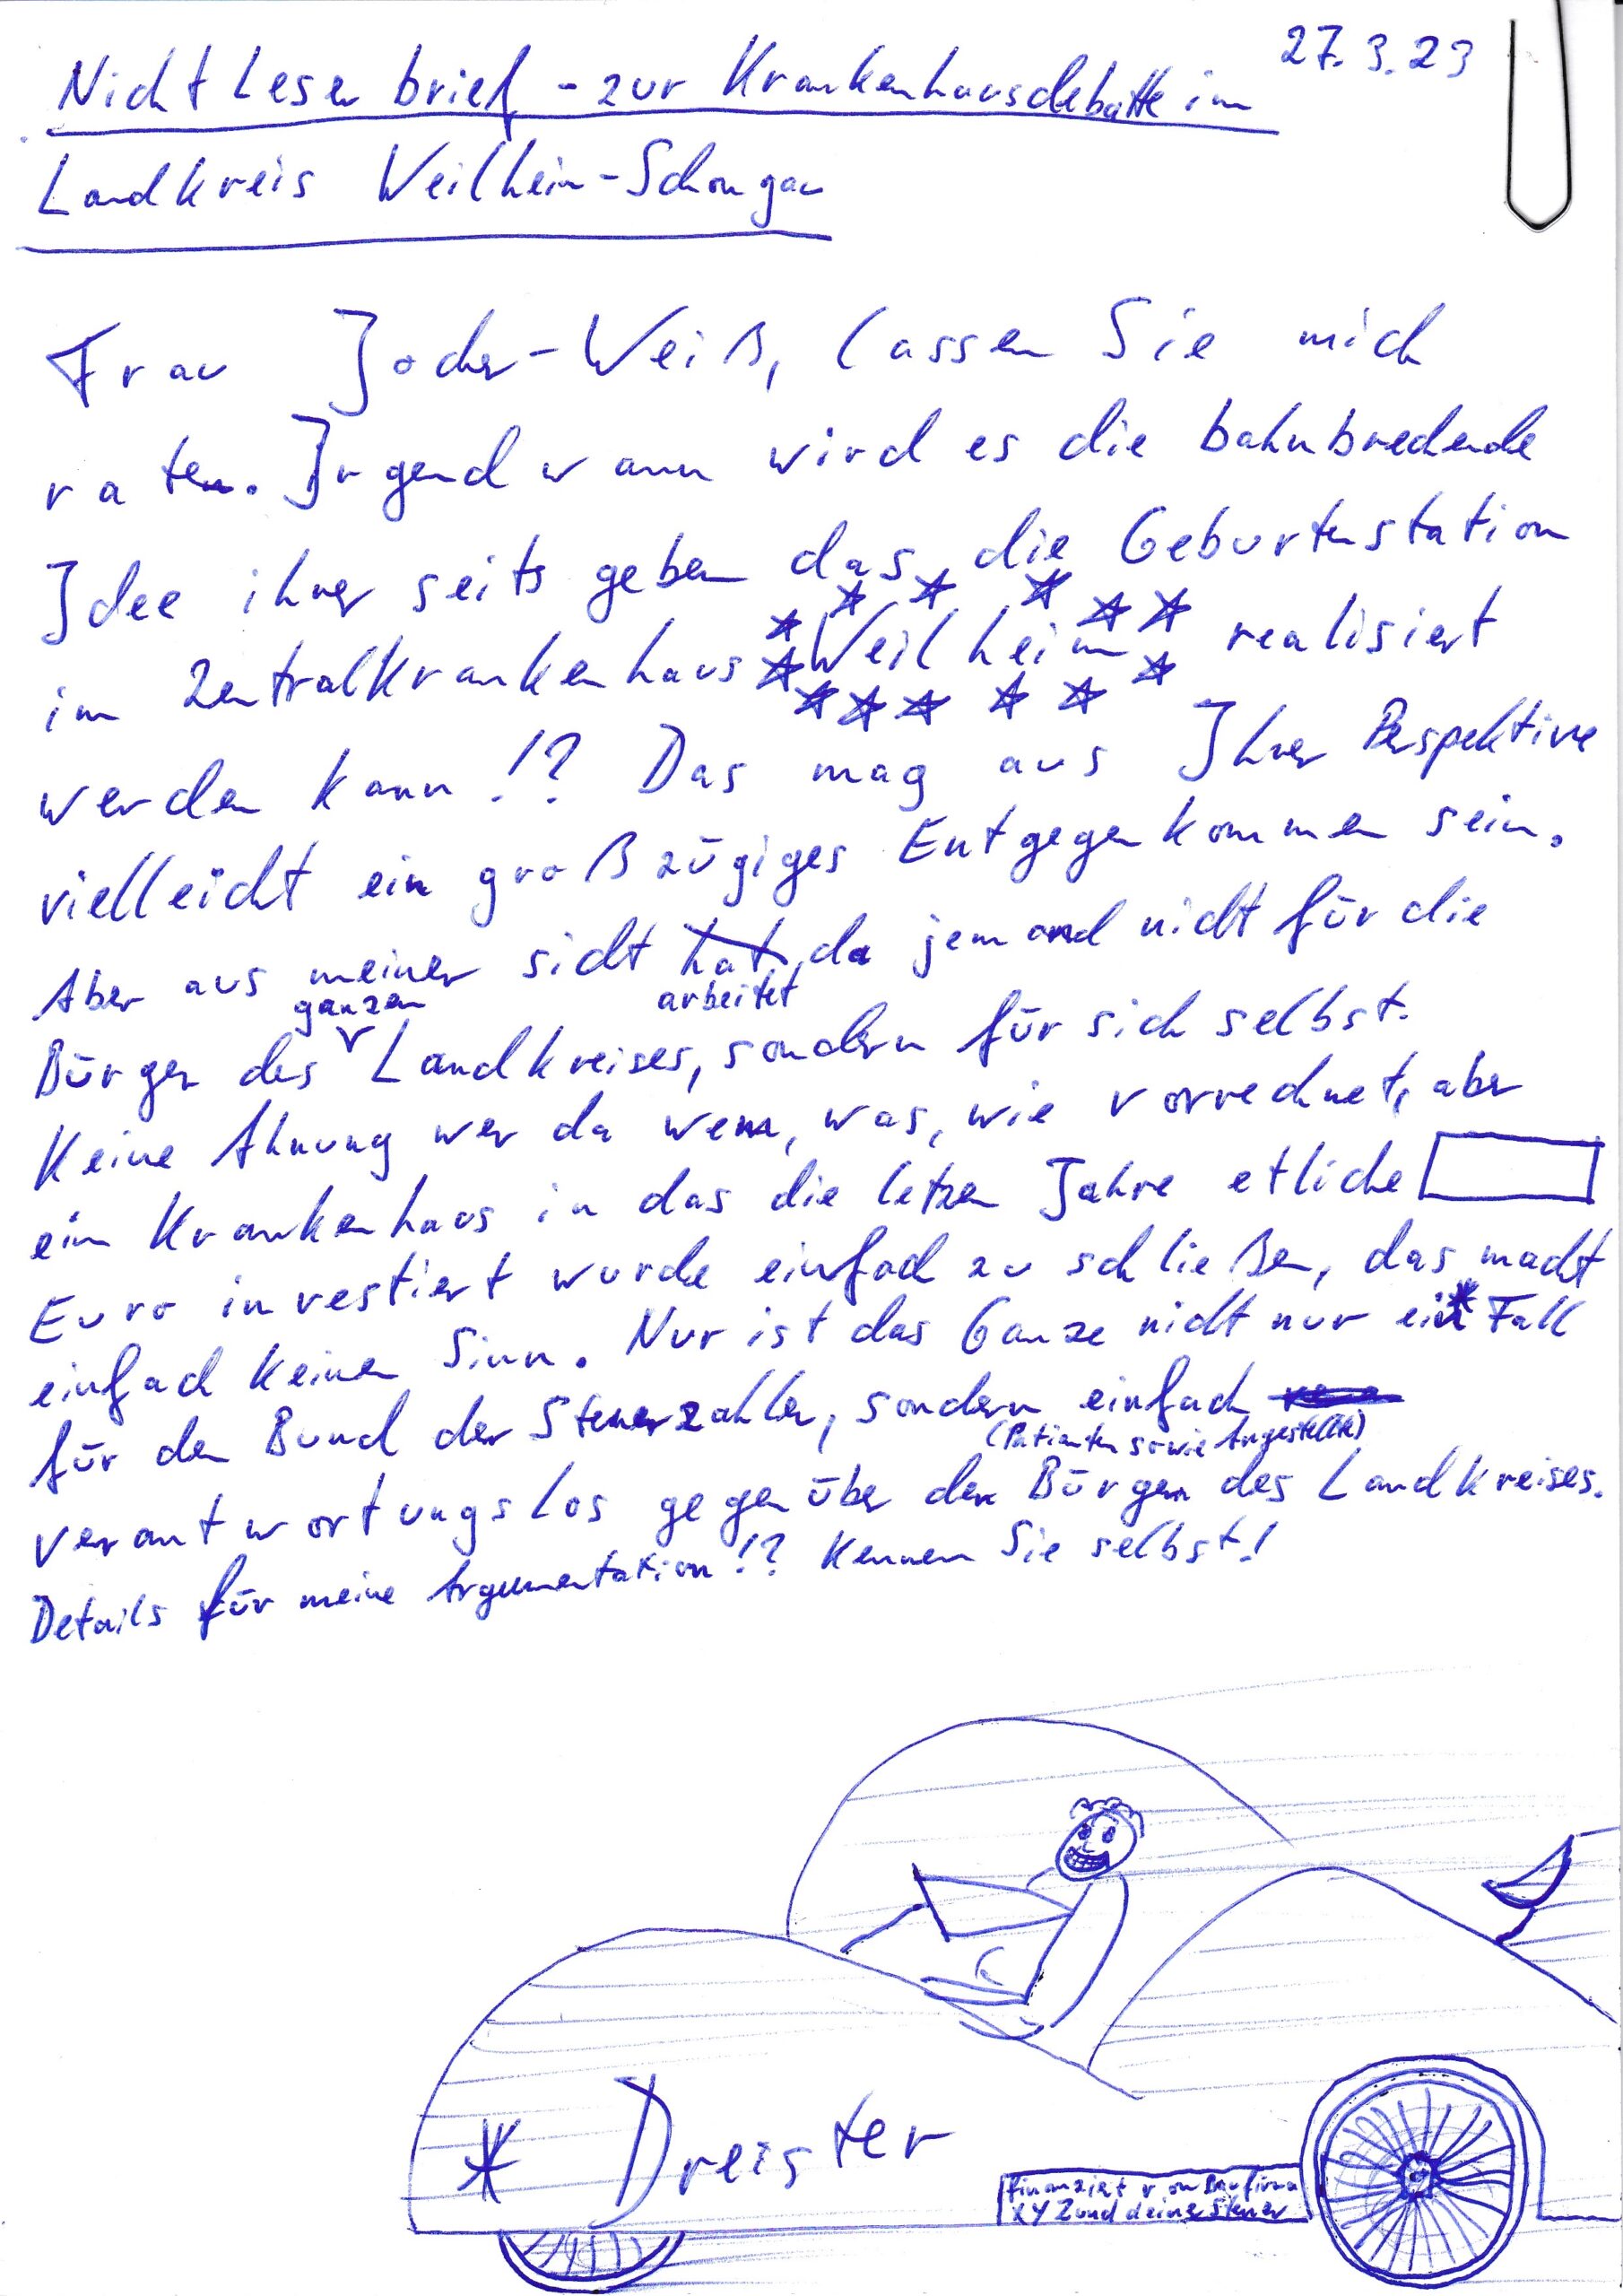 27.3.23
Nicht Leser brief - zur Krankenhausdebatte im
Landkreis Weilheim-Schongau
Frau Jocher-Weiß, lassen Sie mich
raten. Irgendwann wird es die bahnbrechende
Idee ihrer seits geben das die Geburtenstation
im Zentralkrankenhaus Weilheim realisiert
werden kann!? Das mag aus Ihrer Perspektive
vielleicht ein großzügiges Entgegenkommen sein.
Aber aus meiner sicht hat da jemand nicht für die
ganzen arbeitet
Bürger des Landkreises, sondern für sich selbst.
Keine Ahnung wer da wem, was, wie vorrechnet, aber
ein Krankenhaus in das die letzen Jahre etliche
Euro investiert wurde einfach zu schließen, das macht
einfach keinen Sinn. Nur ist das Ganze nicht nur ein* Fall
für den Bund der Steuerzahler, sondern einfach
(Patienten sowie Angestellte)
verantwortungslos gegenüber den Bürgern des Landkreises.
Details für meine Argumentation!? Kennen Sie selbst!
* Dreister
finanziert von Baufirma
XYZ und deiner Steuer